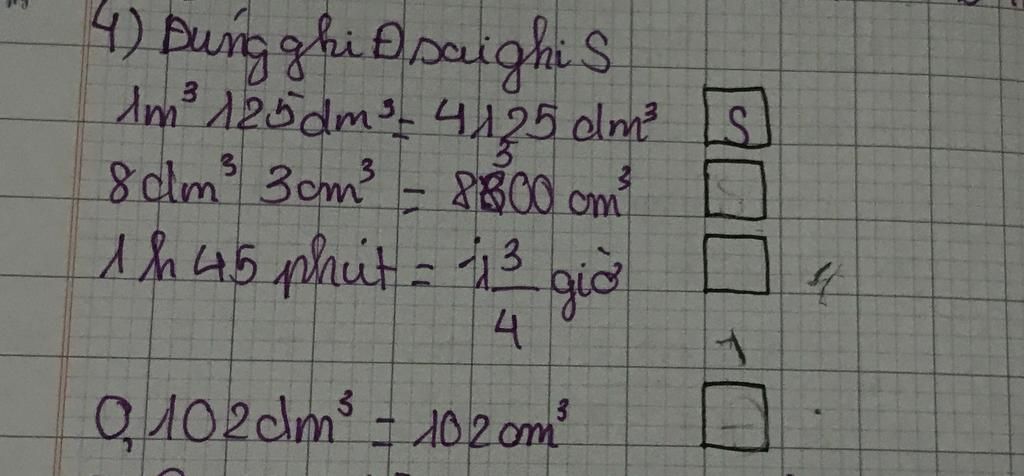 4) Đúng ghi Đ sai ghi S
1m³ 125dm³ = 4125 dm³ S
8dm³ 3cm³ = 8300 cm³
1h 45 phút = 1 3/4 giờ
0,102dm³ = 102cm³